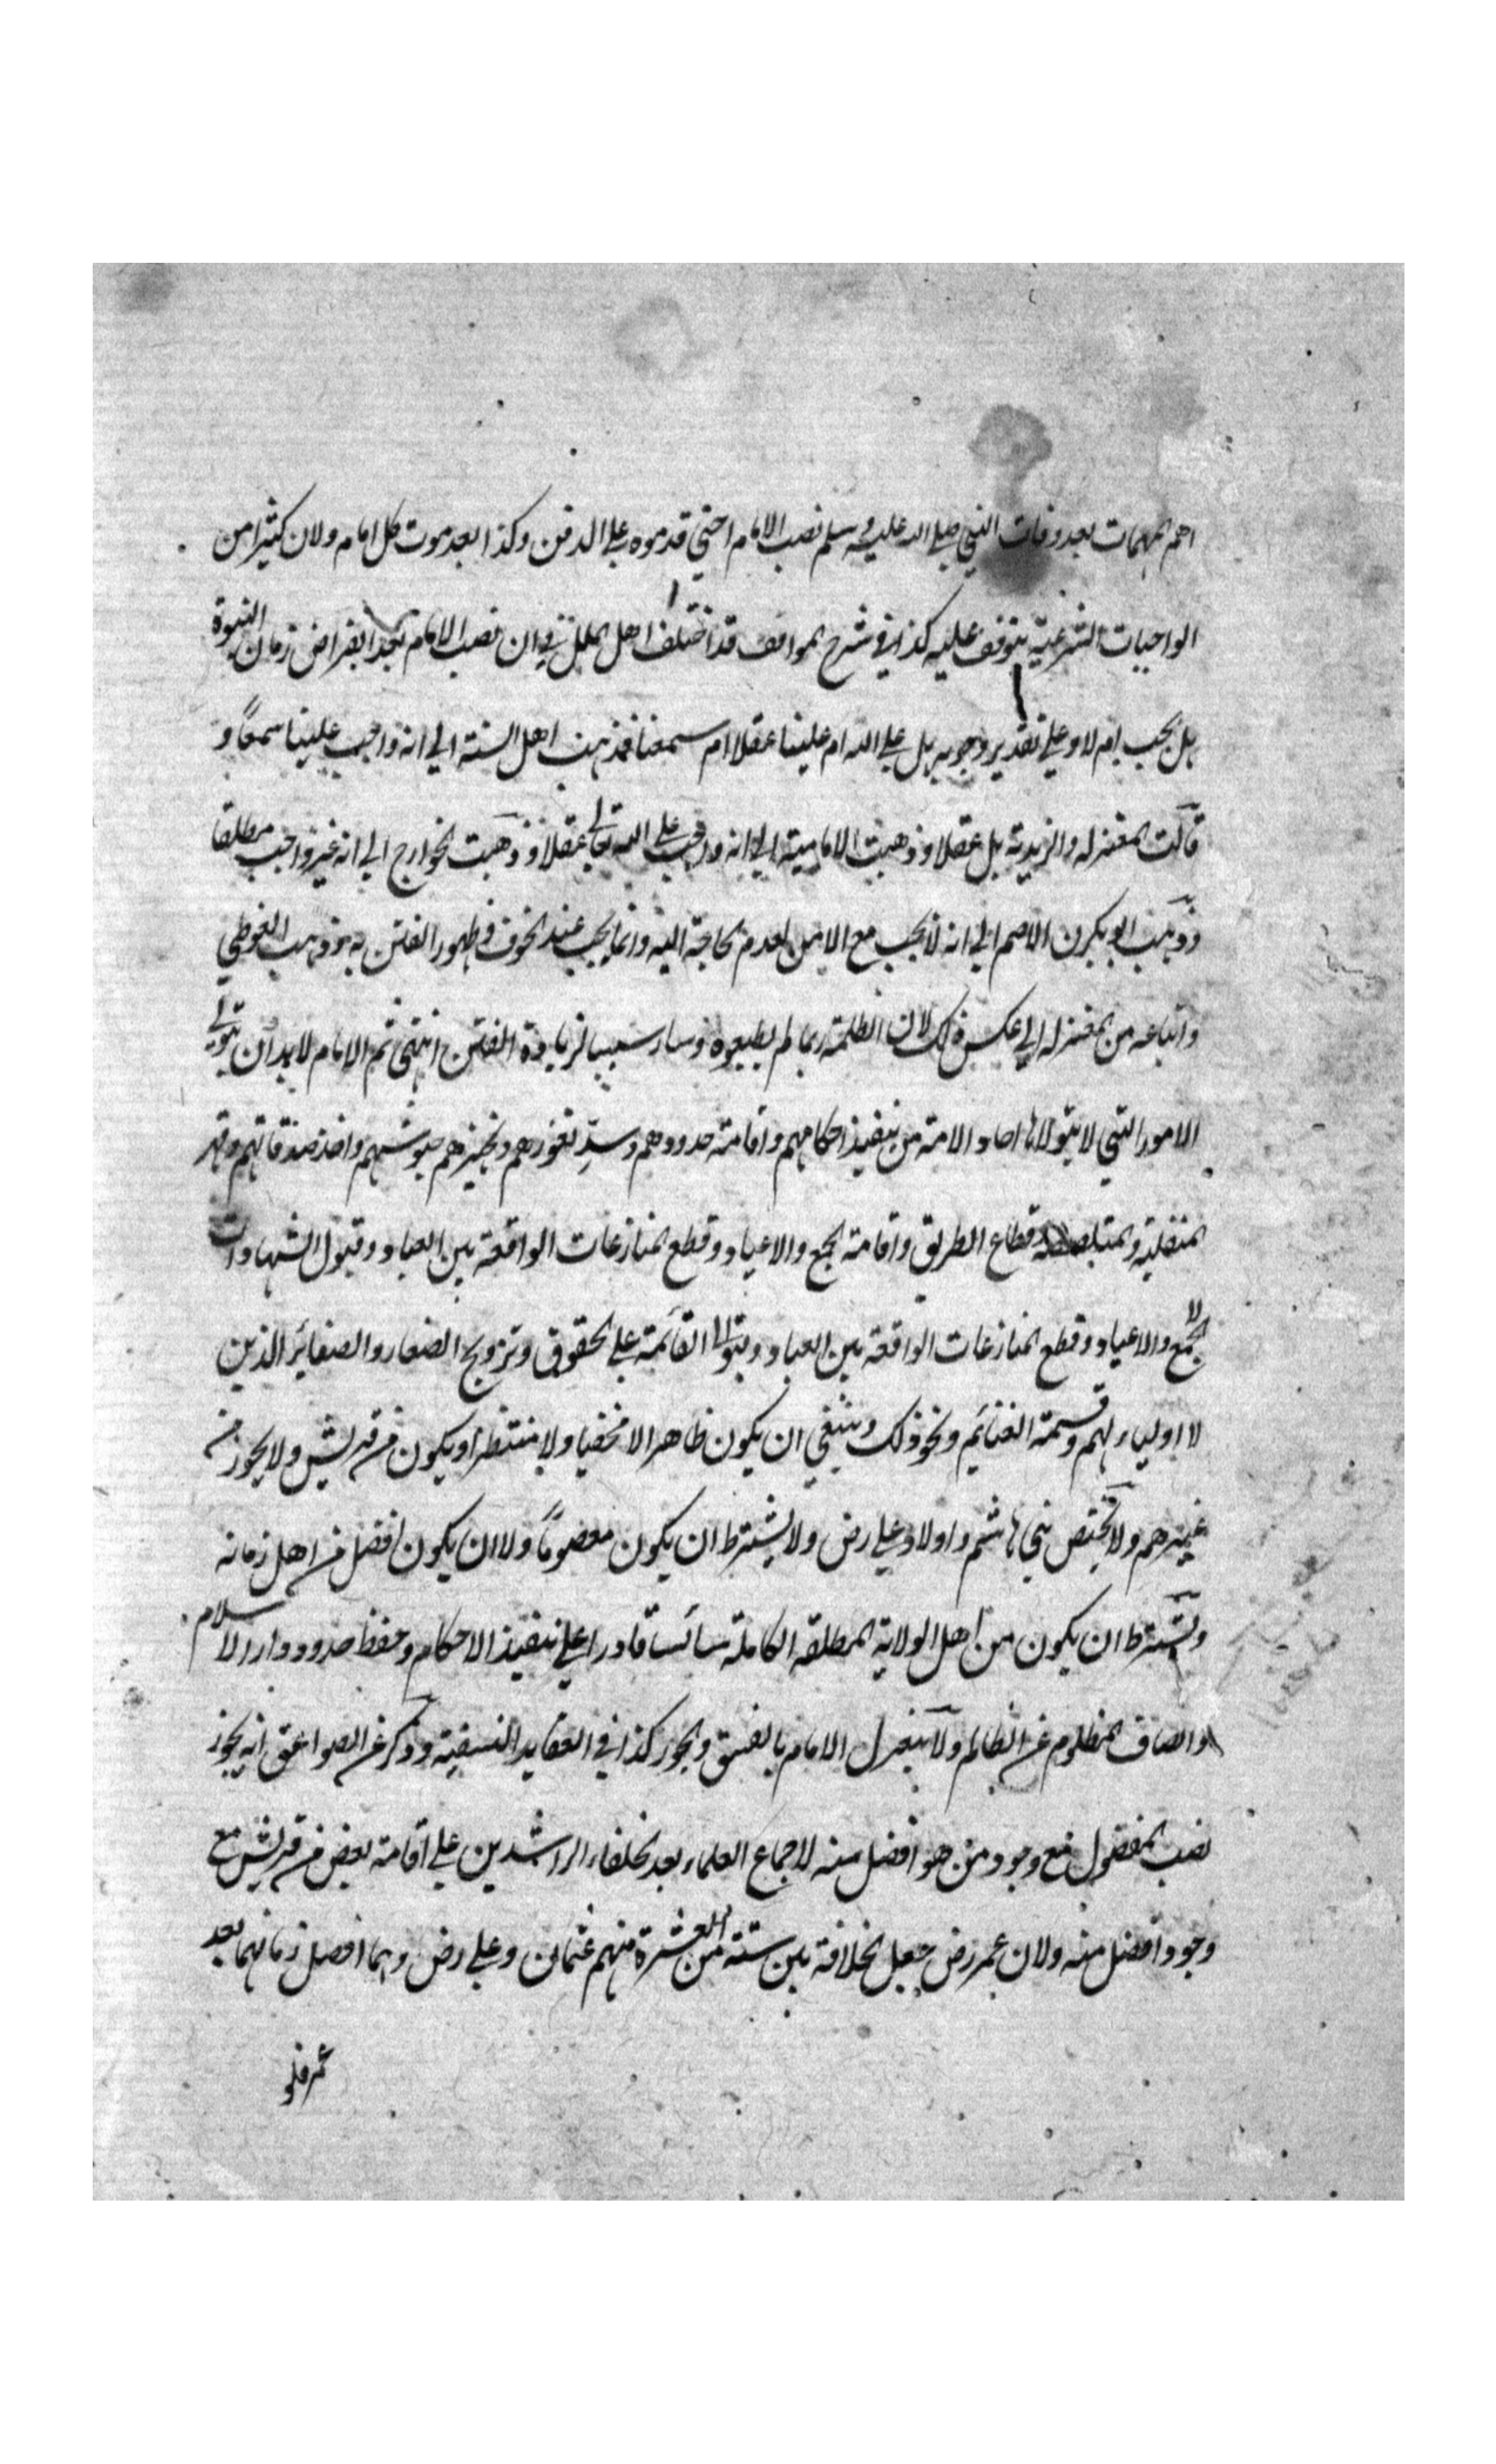 اهم المهمات بعد وفات النبي صلى الله عليه وسلم نصب الامام حتى قدموه على الدفن وكذا بعد موت كل امام ولان كثيرا من
الواجبات الشرعية يتوقف عليه كذا في شرح المواقف قد اختلف اهل الملل في ان نصب الامام بعد انقراض زمان النبوة
هل يجب ام لا وعلى تقدير وجوبه هل على الله ام علينا عقلا ام سمعنا فذهبت اهل السنة الى انه واجب علينا سمعًا و
قالت المعتزله والزيدية بل عقلا وذهبت الامامية الى انه واجب على الله تعالى عقلا وذهبت الخوارج الى انه غير واجب مطلقا
وذهبت ابو بكرن الاصم الى انه لا يجب مع الامن لعدم الحاجة اليه وانما يجب عند الخوف وظهور الفتن وذهب الغوطي
واتباعه من المعتزله الى عكس ذلك لان الظلمة ربما لم يطيعوه وسار سبب لزيادة الفتن انتهى ثم الامام لابد ان يتولى
الامور التي لا يتولاها احاد الامة من تنفيذ احكامهم واقامة حدودهم وسدّ ثغورهم وتجهيزهم جيوشهم واخذ صدقاتهم وقهر
المتغلبة والمتلصصة قطاع الطريق واقامة الجمع والاعياد وقطع المنازعات الواقعة بين العباد وقبول الشهادات
الجمع والاعياد وقطع المنازعات الواقعة بين العباد القائمة على الحقوق وتزويج الصغار والصغائر الذين
لا اولياء لهم وقسمة الغنائم ونحو ذلك وينبغي ان يكون ظاهرا لا مخفيا ولا منتظرا ويكون من قريش ولا يجوز من
غيرهم ولا يختص بني هاشم واولاد علي رض ولا يشترط ان يكون معصومًا ولا ان يكون افضل من اهل زمانه
ويشترط ان يكون من اهل الولاية المطلقه الكاملة سائسا قادرا على تنفيذ الاحكام وحفظ حدود دار الاسلام
وانصاف المظلوم من الظالم ولا ينعزل الامام بالفسق والجور كذا في العقايد النسفية وذكر في الصواعق انه يجوز
نصب المفضول مع وجود من هو افضل منه لاجماع العلماء بعد الخلفاء الراشدين على اقامة بعض من قريش مع
وجود افضل منه ولان عمر رض جعل الخلافة بين ستة من العشرة منهم عثمان وعلي رض وهما افضل زمانهما بعد
عمر فلو